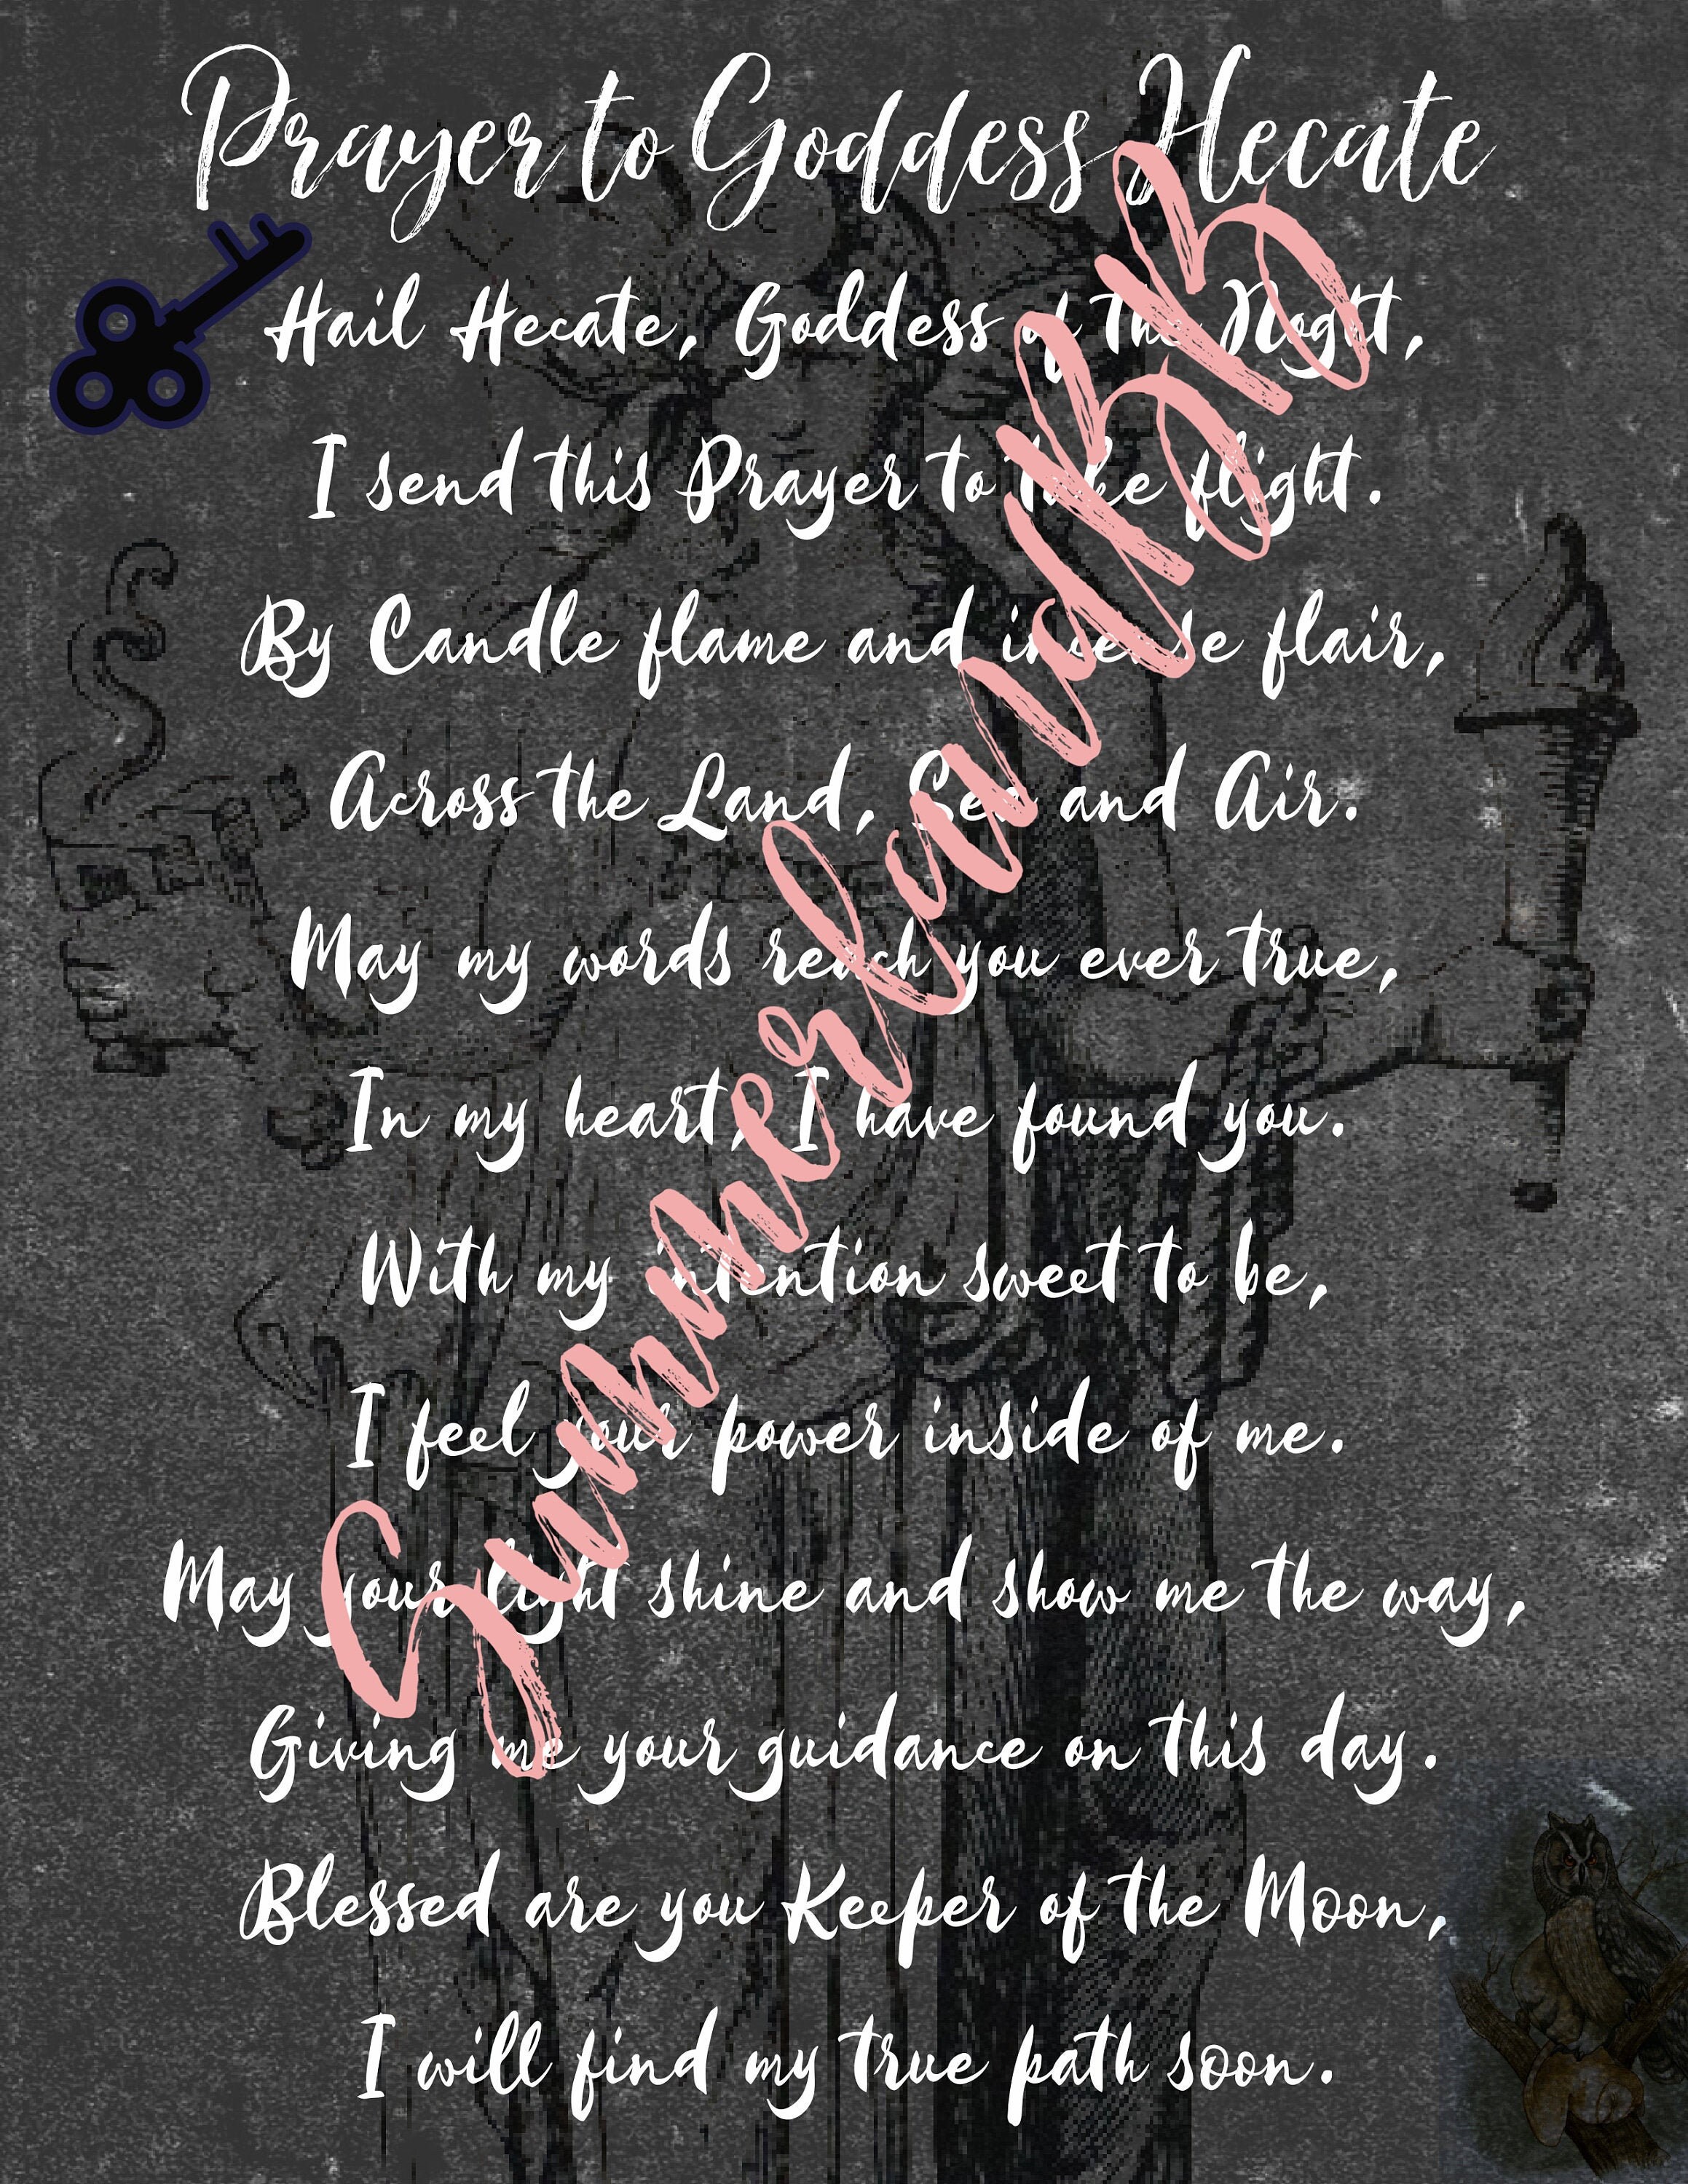 Prayer to Goddess Hecate
Hail Hecate, Goddess of the Night,
I send this Prayer to take flight.
By Candle flame and incense flair,
Across the Land, Sea and Air.
May my words reach you ever true,
In my heart, I have found you.
With my intention sweet to be,
I feel your power inside of me.
May your light shine and show me the way,
Giving me your guidance on this day.
Blessed are you Keeper of the Moon,
I will find my true path soon.
SummerlandBB